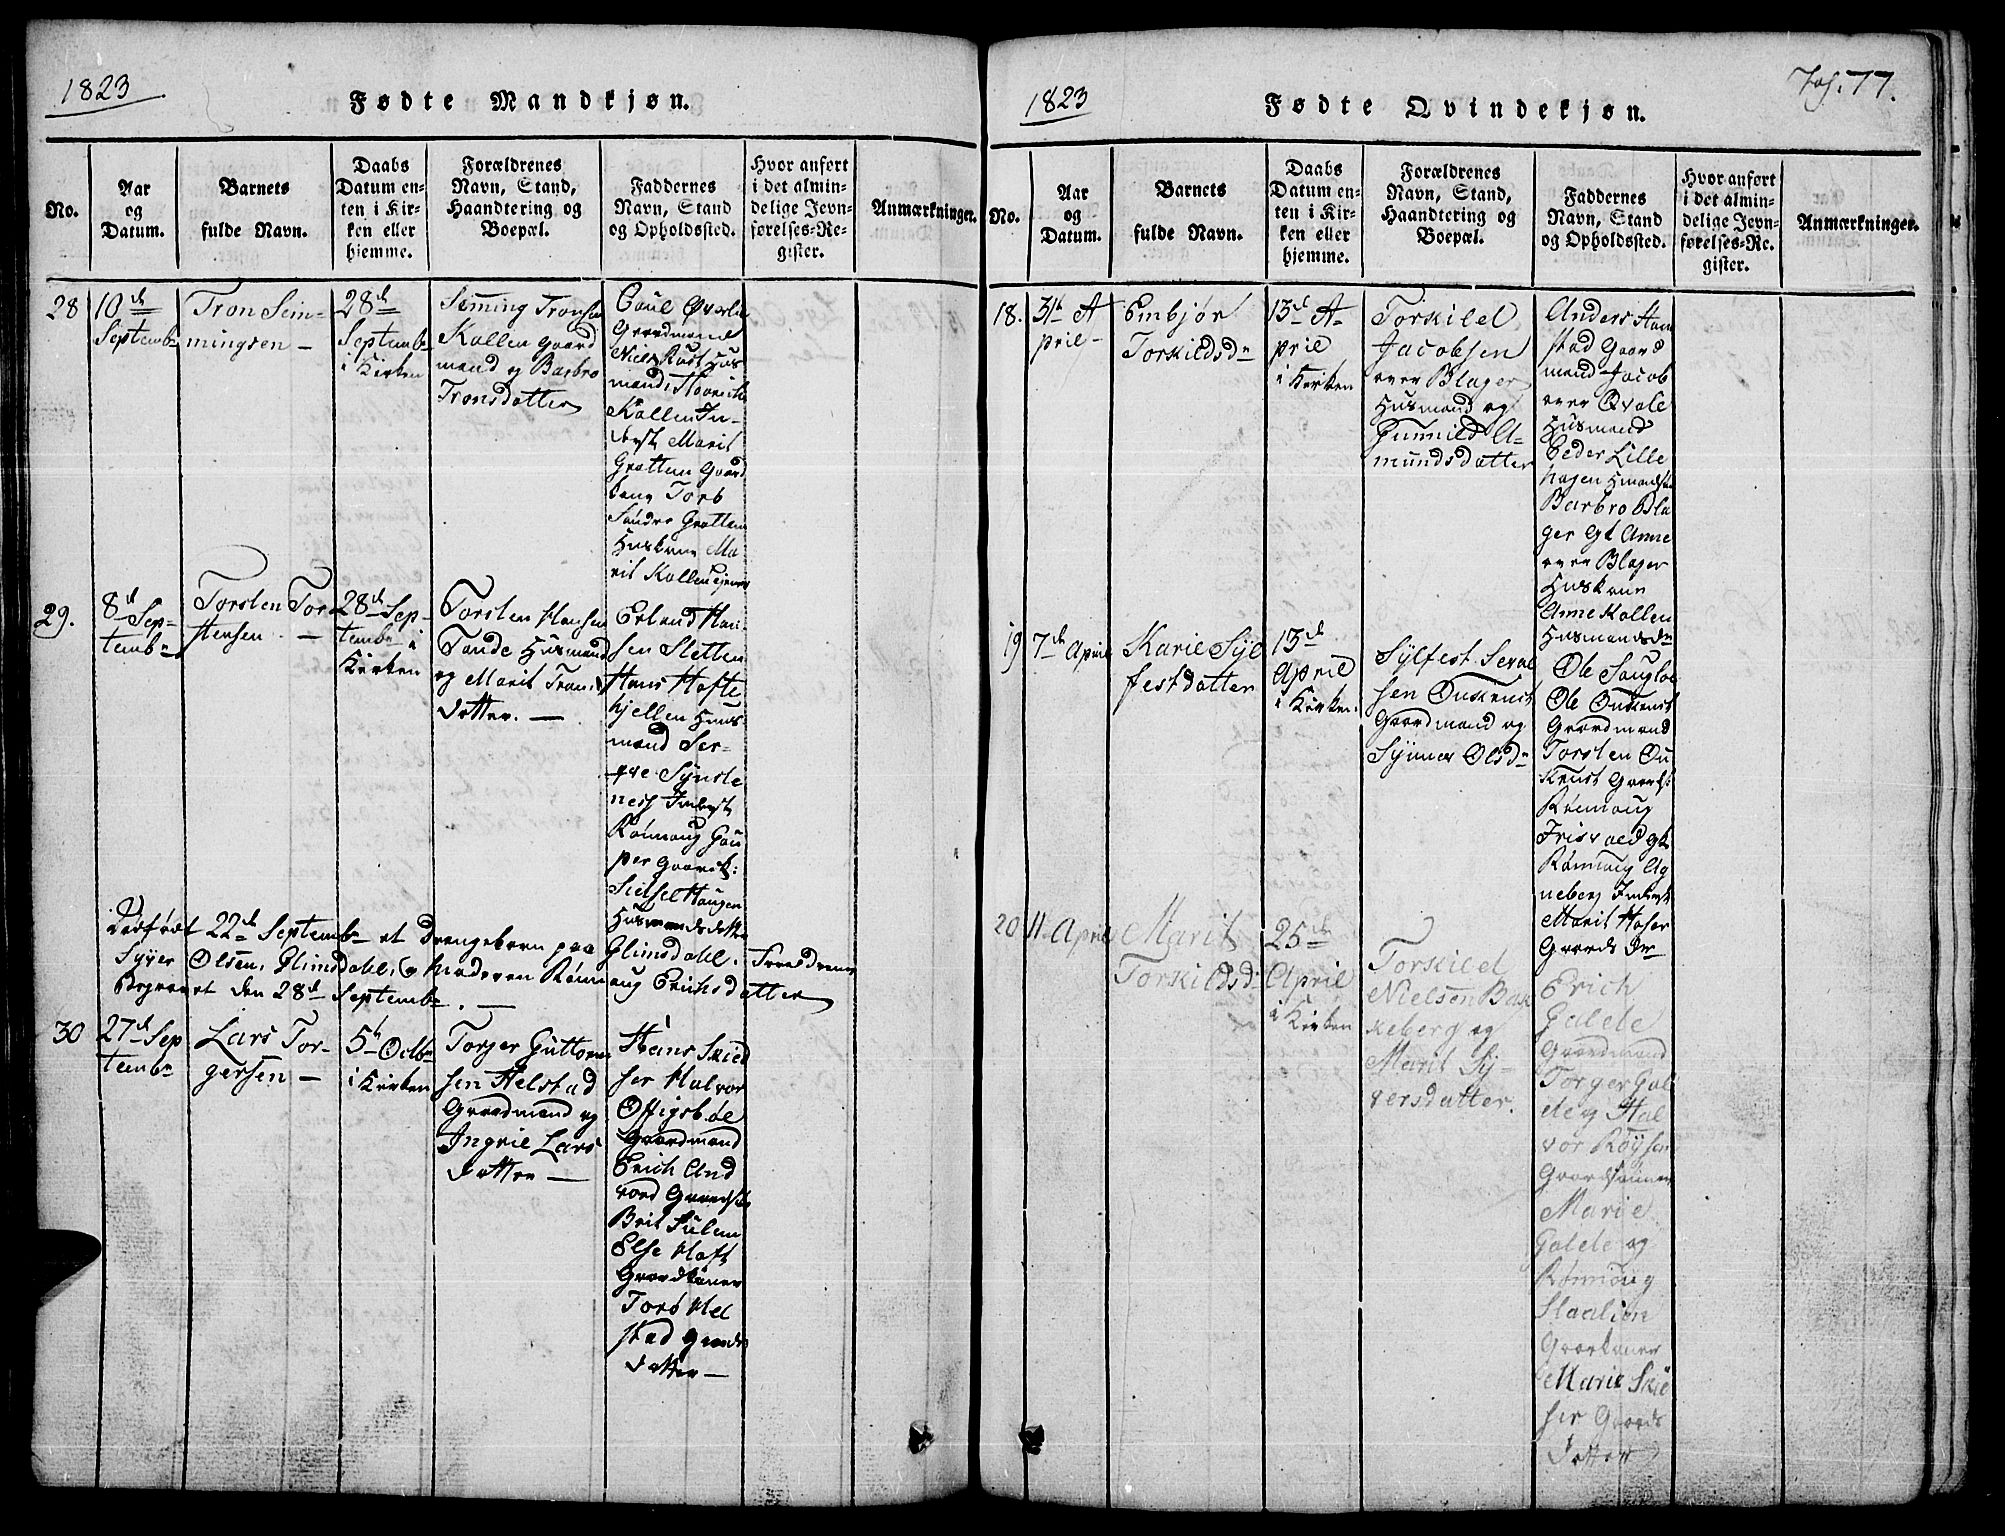 1823
Fødte Mandkjøn.
No.
Aar
og
Datum.
Barnets
fulde Navn.
Daabs
Datum en-
ten i Kir-
ken eller
hjemme.
Forældrenes
Navn, Stand,
Haandtering og
Boepæl.
Faddernes
Navn, Stand
og Opholdssted.
Hvor anført
i det almin-
delige Jevn-
førelses-Re-
gister.
Anmærkninger.
28
10de
Septembr
Tron Sem-
mingsen
28de
Septembr
i Kirken
Semming Tronsen
Kollen Gaard
mand og Barbro
Tronsdatter
Poul Øverlie
Gaardmand
Niels Rust Hus
mand,
Kollen In-
derst Marit
Grotten Gaard
kone Torb
Søndre Grotten
Huskone Ma-
rit Kollen
29.
8de Sep-
tembr
Torsten Tor-
stensen
28de Sep-
tembr i
Kirken
Torsten Hansen
Tande Husmand
og Marit Trons
datter.
Erlend Han
sen Sletten
Hans Hofte
hjellen Huus
mand Ser-
Synste
ness Inderst
Rønnoug Gau
per Gaardk:
Sidsel Haugen
Husmandsdatter
Dødfødt 22de Septembr et Drengebarn paa Glimsdahl. Forældrene
Syver Olsen Glimsdahl, og Moderen Rønnoug Erichsdatter
Begravet den 28de Septembr.
30
27de Sep
tembr
Lars Tor-
gersen
5te Octbr
i Kirken
Torger Guttorm
sen Helstad
Gaardmand og
Ingrie Lars
datter
Hans Skied
ser Halvor
Offigsbøe
Gaardmænd
Erich And
vord
Brit Sulem
Else Hoft
Gaardkoner
Torø Hel
stad Gaards
datter
1823
Fødte Qvindekjøn.
77.
No.
Aar
og
Datum.
Barnets
fulde Navn.
Daabs
Datum en-
ten i Kir-
ken eller
hjemme.
Forældrenes
Navn, Stand,
Haandtering og
Boepæl.
Faddernes
Navn, Stand
og Opholdssted.
Hvor anført
i det almin-
delige Jevn-
førelses-Re-
gister.
Anmærkninger.
18.
31te A
pril
Embjør
Torkildsdr
13de A-
pril
i Kirken
Torkild
Jacobsen
øvre Blager
Husmand og
Gunnild A-
mundsdatter
Anders Ham
stad Gaard
mand Jacob
øvre Qvale
Husmand
Peder Lille
hagen
Barbro Bla
ger Anne
øvre Blager
Huskone
Anne Kollen
Husmandsdr
19
7de April
Karie Syl
festdatter
13de
April
i Kirken
Sylfest
sen Ouknust
Gaardmand og
Synnev Olsdr
Ole Sougloe
Ole Ouknust
Gaardmænd
Torsten Ou
knust
Rønnoug
Frisvold
Rønnoug Ag
neberg Inderst
Marit Hoser
Gaards Dr
20
11 April
Marit
Torkildsdr
25de
April
i Kirken
Torkild
Nielsen Bak
keberg og
Marit Sy-
versdatter.
Erich
Galde
Gaardmand
Torger Gal
de og Hal
vor Røysen
Gaardsønner
Marie
Galde og
Rønnoug
Staalien
Gaardkoner
Marie Skie
ser Gaards
datter